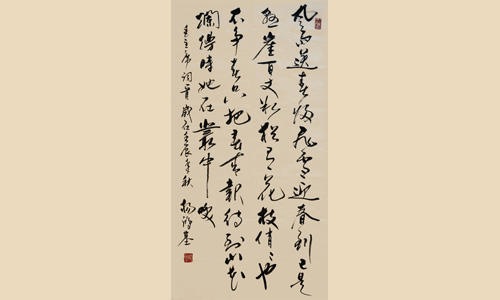 風雨送春歸飛雪迎春到已是
懸崖百丈冰猶有花枝俏〻也
不争春只把春来報待到山花
爛漫時她在叢中笑
毛主席词一首 歲在壬辰年秋